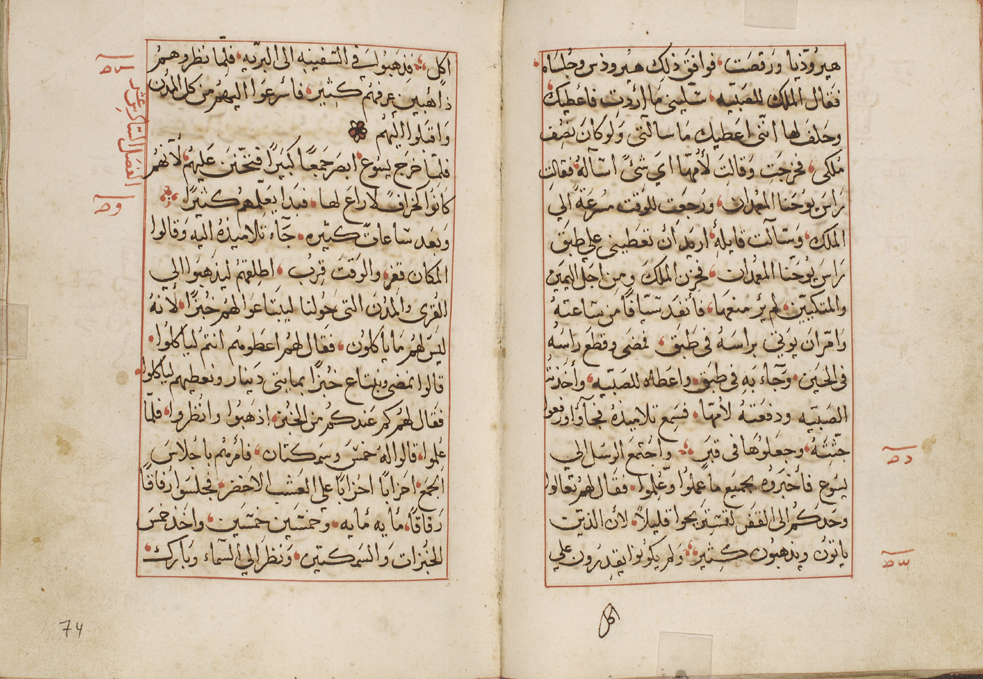 هيروذيا ورقصت، فوافق ذلك هيروذس وجلساه
فقال الملك للصبيه، سليني ما اردت فاعطيك
وحلف لها انني اعطيك ما سالتي ولو كان نصف
ملكي، فخرجت وقالت لامها اي شئ اساله فقالت
راس يوحنا المعمدان، ورجعت للوقت مسرعة الي
الملك، وسالت قايلة، اريد ان تعطيني علي طبق
راس يوحنا المعمدان، فحزن الملك ومن اجل اليمين
والمتكيين، لم ير منعها، فانفد سيافا من ساعته
وامر ان يوتي براسه في طبق، فمضي وقطع راسه
في الحبس، وجاء به في طبق، واعطاه للصبيه، واخذت
الصبيه ودفعته لامها، فسمع تلاميذه فجاوا ورفعوا
جثته، وجعلوها في قبر، واجتمع الرسل الي
يسوع فاخبروه بجميع ما عملوا وعلموا، فقال لهم تعالوا
وحدكم الى القفر لنستريحوا قليلا، لان الذين
ياتون ويذهبون كثير، ولم يكونوا يقدرون علي
اكل
اكل، فذهبوا في السفينه الى البريه، فلما نظروهم
ذاهبين عرفهم كثير، فاسرعوا اليهم من كل المدن
واقبلوا اليهم
الفصل السادس عشر
فلما خرج يسوع ابصر جمعا كبيرا فتحنن عليهم، لانهم
كانوا كالخراف لا راع لها، فبدا يعلمهم كثيرا
وبعد ساعات كثيره، جاء تلاميذه اليه وقالوا
المكان قفر، والوقت قرب، اطلقهم ليذهبوا الي
القرى والمدن التي حولنا ليبتاعوا لهم خبزا، لانه
ليس لهم ما ياكلون، فقال لهم اعطوهم انتم لياكلوا،
قالوا نمضي ونبتاع خبزا بمايتي دينار ونعطيهم لياكلوا
فقال لهم كم عندكم من الخبز، اذهبوا وانظروا، فلما
علموا، قالوا له خمس وسمكتان، فامرهم باجلاس
الجمع احزابا احزابا علي العشب الاخضر، فجلسوا رفاقا
رفاقا، مايه مايه، وخمسين خمسين، واخذ خمس
الخبزات والسمكتين، ونظر الي السماء وبارك،
74